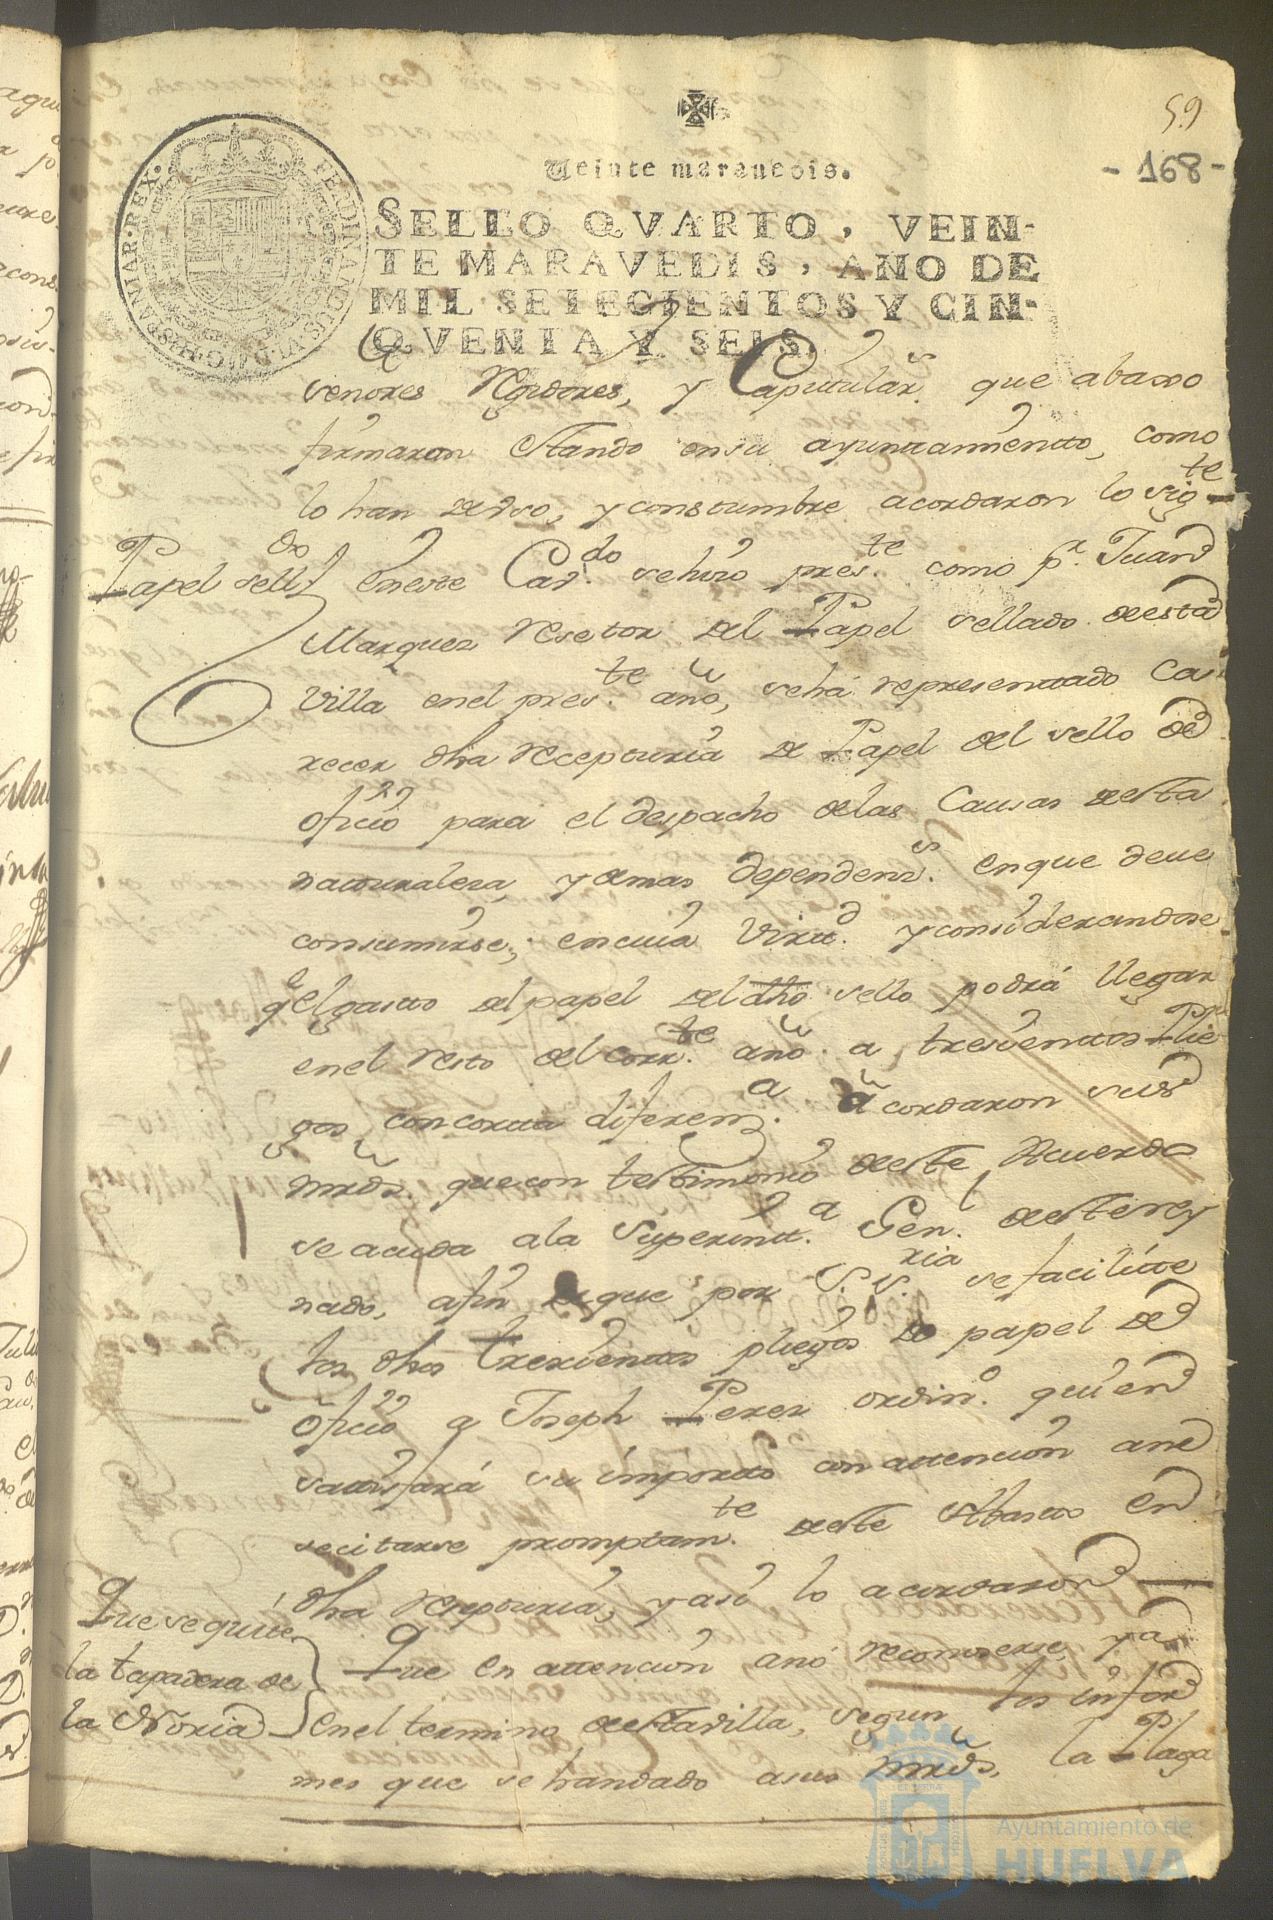 59
-168-
Veinte maravedis.
SELLO QVARTO, VEIN-
TE MARAVEDIS, AÑO DE
MIL SETECIENTOS Y CIN-
QVENTA Y SEIS.
FERDINANDUS VI D.G. HISPANIAR. REX.
senores Rexidores, y Capitular.s que abaxo
firmaron estando en su ayuntamiento, como
lo han de uso, y constumbre acordaron lo sig.te
Papel sell.do En este Cav.do se hizo pres.te como p.r Juan
Marquez resetor del Papel sellado de esta
Villa en el pres.te año, se há representado Ca-
recer dha recepturia de Papel del sello de
oficio para el despacho de las Causas de esta
naturaleza, y demas dependenz.s en que deve
consumirse; en cuia Virtd. y considerandose
q.e el gasto del papel del dho sello podrá llegar
en el resto del corr.te año a tresientos Plie
gos con corta diferenz.a acordaron sus
mrds. que con testimonio de este Acuerdo
se acuda a la Superint.a Gen.l de este rey
nado, afin de que por S.S.ria se facilite
los dhos tresientos pliegos de papel de
Oficio a Joseph Perez ordin.o quien
satisfará su importe con attencion a ne
secitarse promptam.te de este Abasto En
dha recepturia, y asi lo acordaron
Que se quite
la tapadera de
la Noria
Que en attencion a no reconoserse ya
en el termino de esta villa, segun los infor
mes que se han dado a sus mrds. la Plaga
Ayuntamiento de
HUELVA